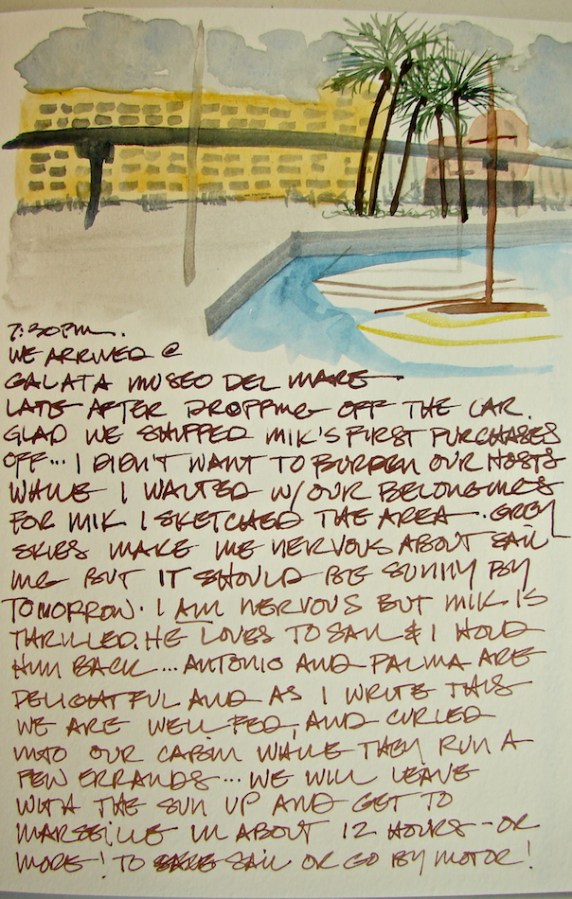 7:30PM.
WE ARRIVED @
GALATA MUSEO DEL MARE
LATE AFTER DROPPING OFF THE CAR.
GLAD WE SHIPPED MIK'S FIRST PURCHASES
OFF... I DIDN'T WANT TO BURDEN OUR HOSTS
WHILE I WAITED W/OUR BELONGINGS
FOR MIK I SKETCHED THE AREA. GREY
SKIES MAKE ME NERVOUS ABOUT SAIL
ING BUT IT SHOULD BE SUNNY BY
TOMORROW. I AM NERVOUS BUT MIK IS
THRILLED. HE LOVES TO SAIL & I HOLD
HIM BACK... ANTONIO AND PALMA ARE
DELIGHTFUL AND AS I WRITE THIS
WE ARE WELL FED, AND CURLED
INTO OUR CABIN WHILE THEY RUN A
FEW ERRANDS... WE WILL LEAVE
WITH THE SUN UP AND GET TO
MARSEILLE IN ABOUT 12 HOURS - OR
MORE! TO SAIL OR GO BY MOTOR!